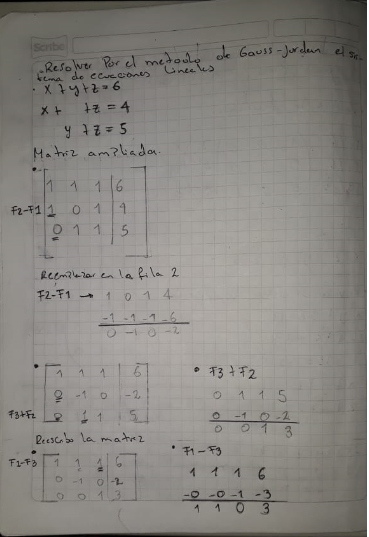 Scribe
Resolver Por el metodo de Gauss-Jordan el sis-
tema de ecuaciones Lineales
x + y + z = 6
x + + z = 4
y + z = 5
Matriz ampliada.
1 1 1 | 6
F2-F1 1 0 1 | 4
0 1 1 | 5
Reemplazar en la fila 2
F2-F1 → 1 0 1 4
-1 -1 -1 -6
0 -1 0 -2
1 1 1 | 6
0 -1 0 | -2
F3+F2 0 1 1 | 5
F3+F2
0 1 1 5
0 -1 0 -2
0 0 1 3
Reescribo la matriz
F1-F3 1 1 1 | 6
0 -1 0 | -2
0 0 1 | 3
F1-F3
1 1 1 6
-0 -0 -1 -3
1 1 0 3